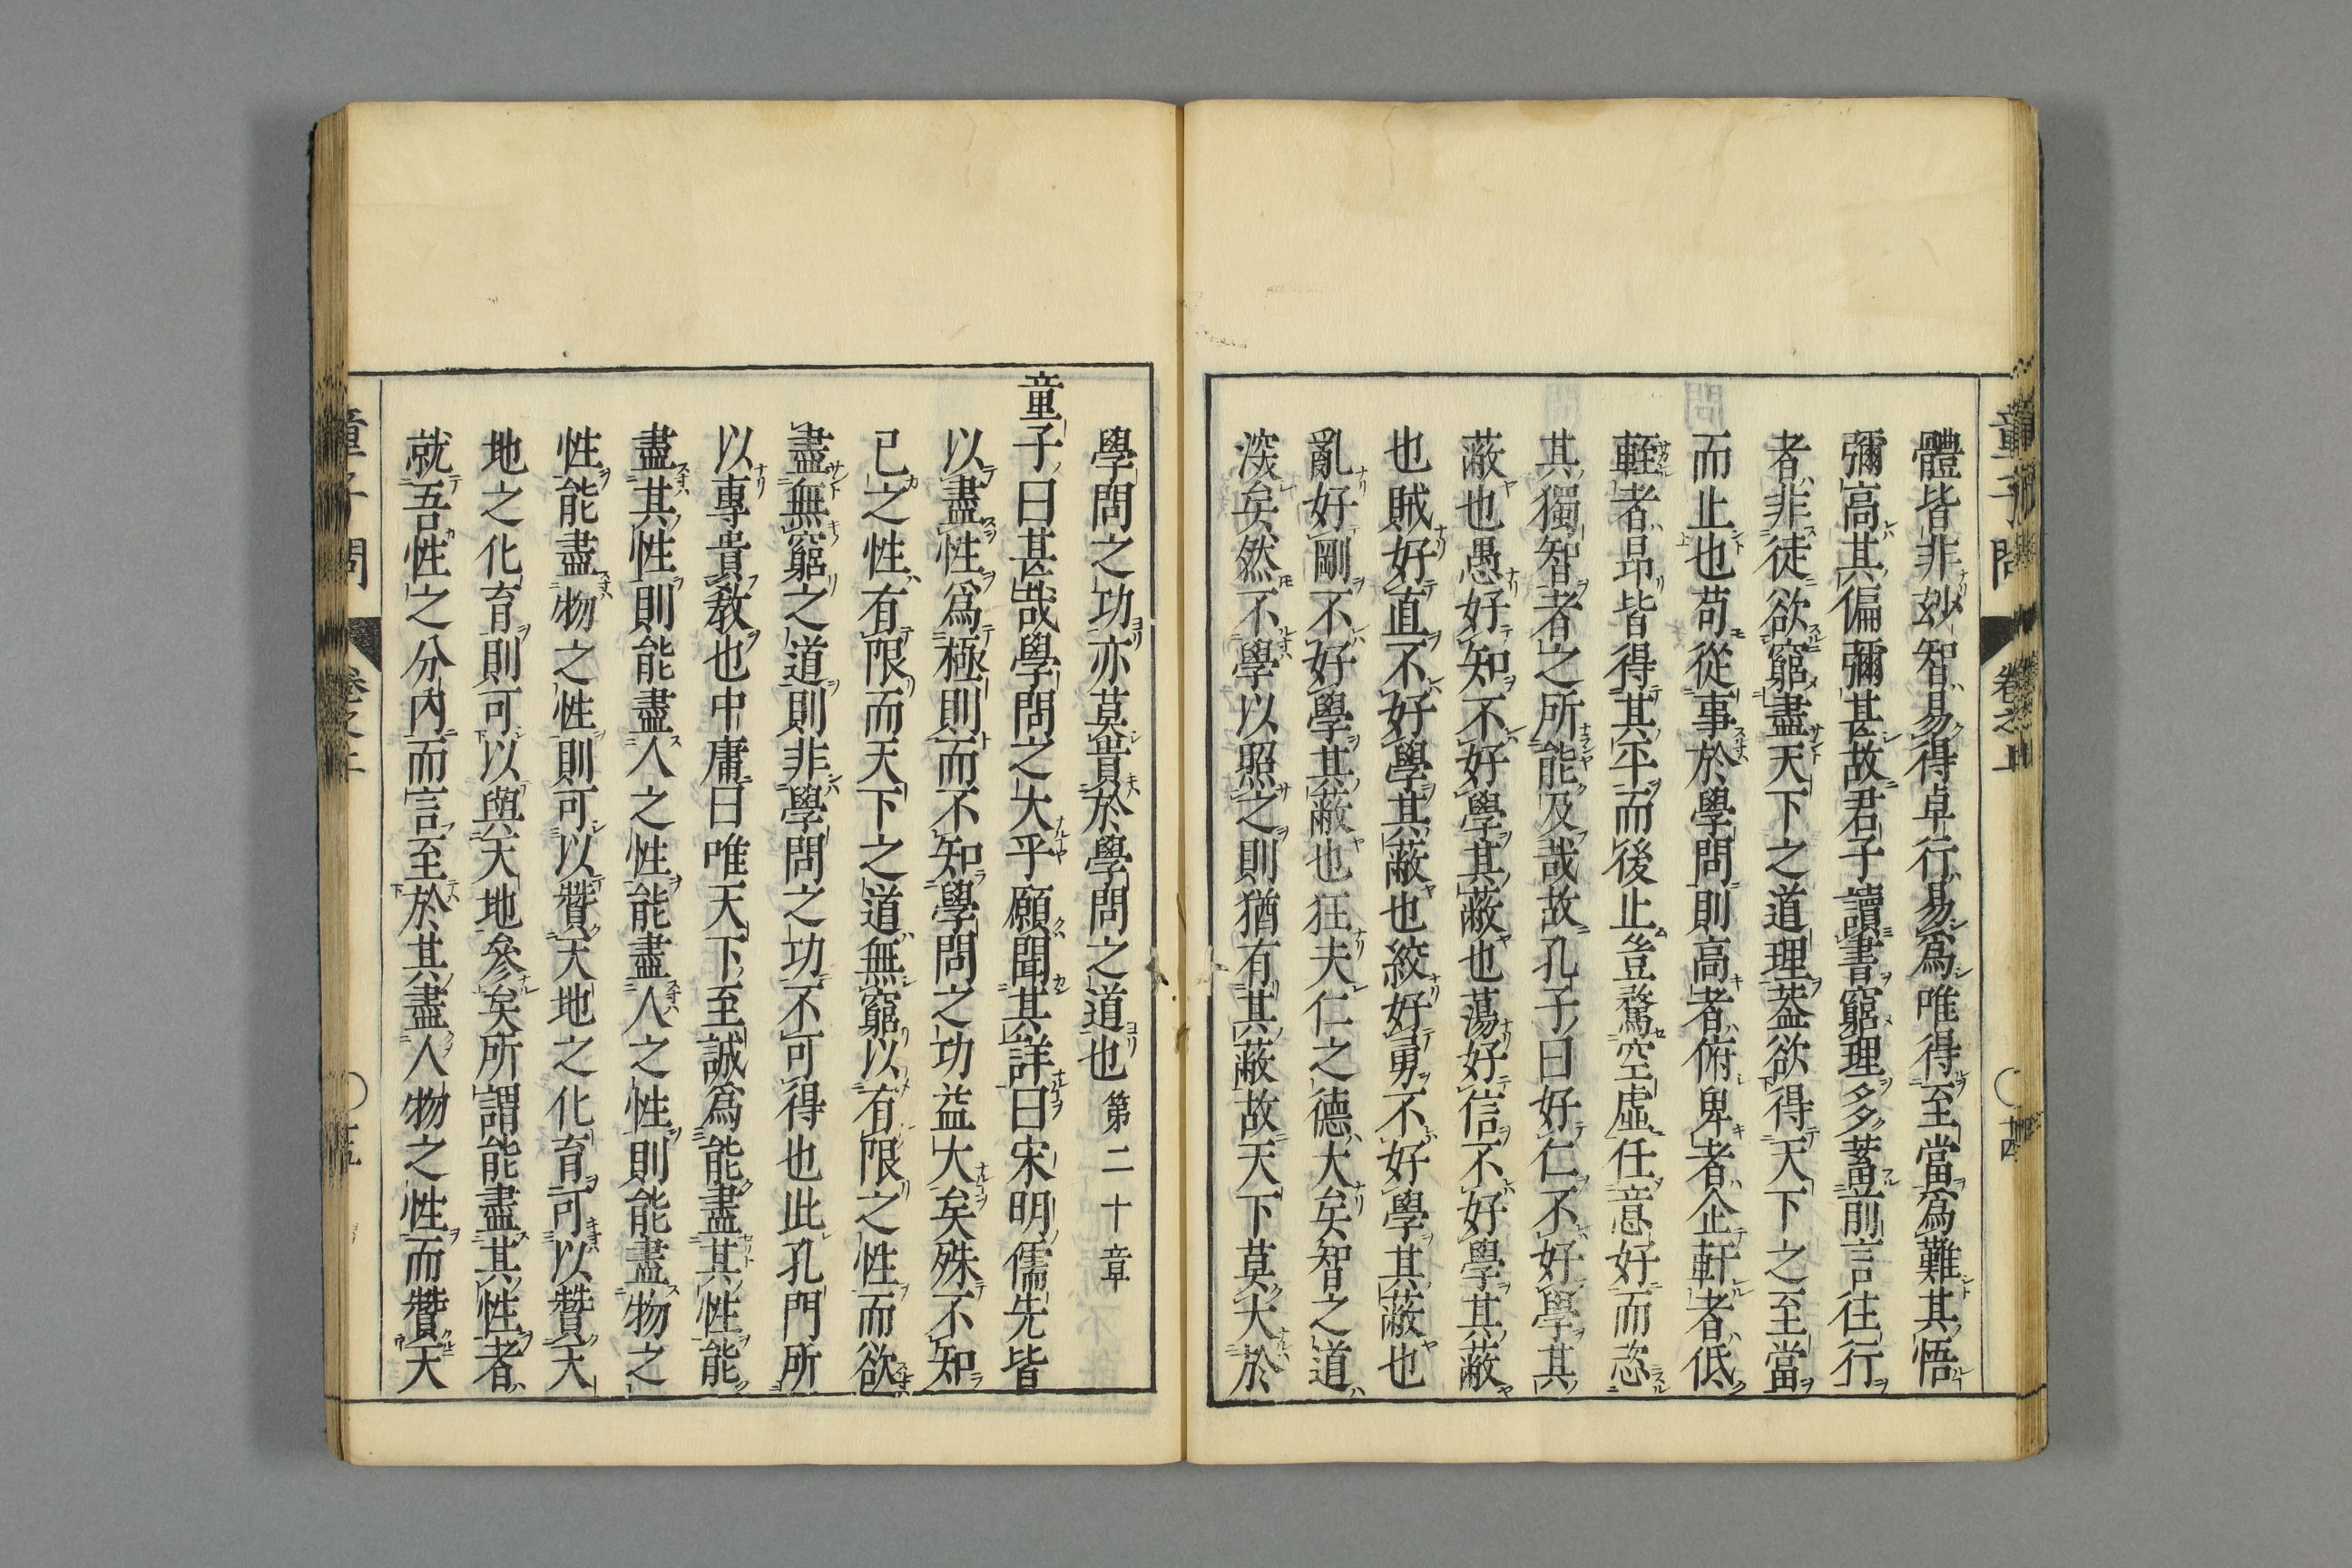 體皆非玅智易得卓行易爲唯得至當爲難其悟
彌高其偏彌甚故君子讀書窮理多蓄前言往行
者非徒欲窮盡天下之道理葢欲得天下之至當
而止也苟從事於學問則高者俯卑者企軒者低
輊者昂皆得其平而後止豈騖空虛任意好而恣
其獨智者之所能及哉故孔子曰好仁不好學其
蔽也愚好知不好學其蔽也蕩好信不好學其蔽
也賊好直不好學其蔽也絞好勇不好學其蔽也
亂好剛不好學其蔽也狂夫仁之德大矣智之道
深矣然不學以照之則猶有其蔽故天下莫大於
學問之功亦莫貴於學問之道也 第二十章
童子曰甚哉學問之大乎願聞其詳曰宋明儒先皆
以盡性爲極則而不知學問之功益大矣殊不知
已之性有限而天下之道無窮以有限之性而欲
盡無窮之道則非學問之功不可得也此孔門所
以專貴敎也中庸曰唯天下至誠爲能盡其性能
盡其性則能盡人之性能盡人之性則能盡物之
性能盡物之性則可以贊天地之化育可以贊天
地之化育則可以與天地參矣所謂能盡其性者
就吾性之分內而言至於其盡人物之性而贊天
童子問
卷之上